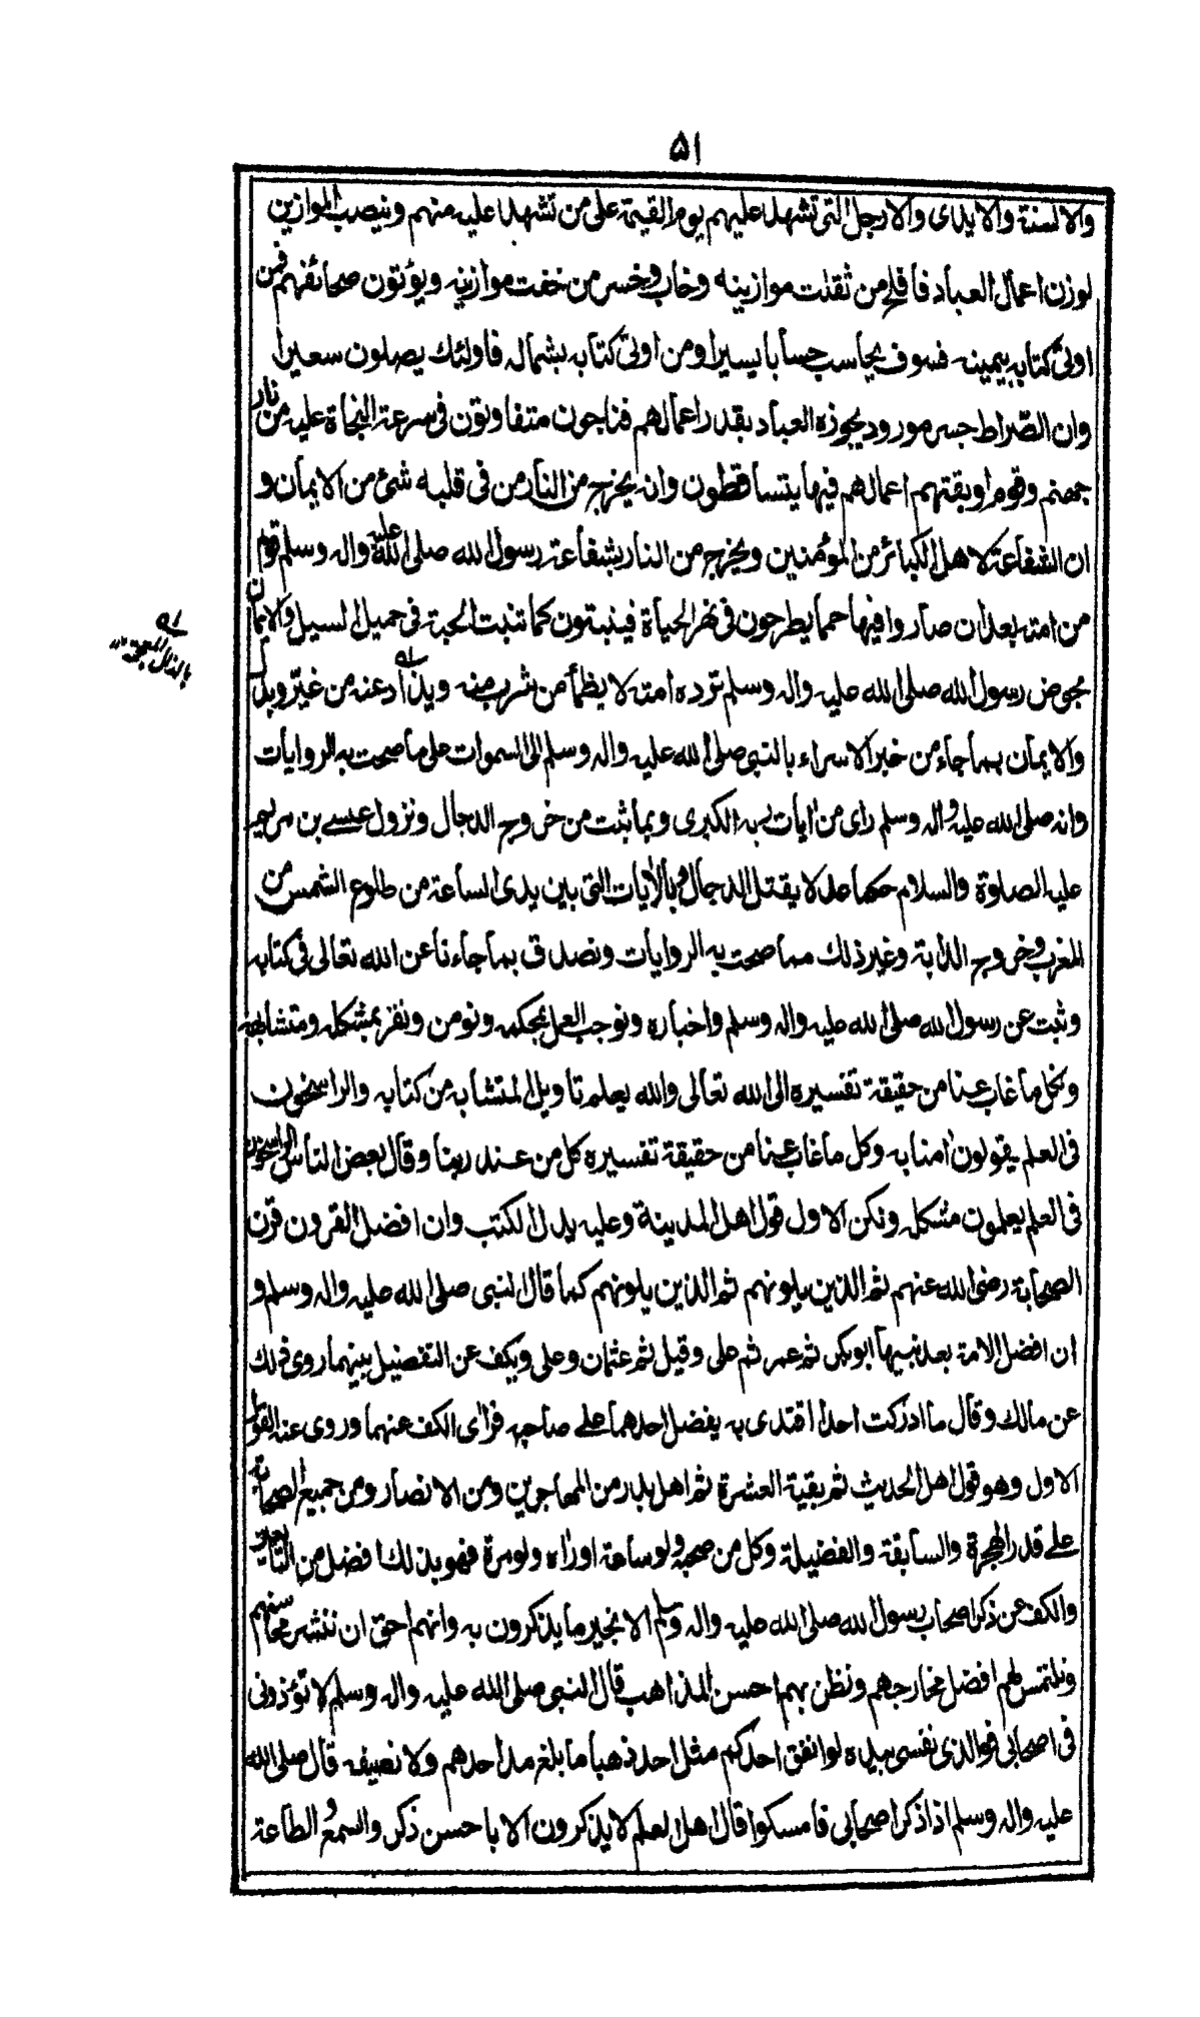 ۵۱
والالسنة والايدى والارجل التى تشهد عليهم يوم القيمة على من تشهد عليه منهم وينصب الموازين
لوزن اعمال العباد فأفلح من ثقلت موازينه وخاب وخسر من خفت موازينه ويؤتون صحائفهم فمن
اوتى كتابه بيمينه فسوف يحاسب حسابا يسيرا ومن اوتى كتابه بشماله فاولئك يصلون سعيرا
وان الصراط جسر مورود يجوزه العباد بقدر اعمالهم فناجون متفاوتون فى سرعة النجاة عليه من نار
جهنم وقوم اوبقتهم اعمالهم فيها يتساقطون وانه يخرج من النار من فى قلبه شئ من الايمان و
ان الشفاعة لاهل الكبائر من المؤمنين ويخرج من النار بشفاعة رسول الله صلى الله عليه واله وسلم قوم
من امته بعد ان صاروا فيها حمما يطرحون فى نهر الحياة فينبتون كما تنبت الحبة فى حميل السيل والايمان
بحوض رسول الله صلى الله عليه واله وسلم ترده امته لا يظمأ من شرب منه ويذاد عنه من غيّر وبدل
بالذال المعجمة
والايمان بما جاء من خبر الاسراء بالنبى صلى الله عليه واله وسلم الى السموات على ما صحت به الروايات
وانه صلى الله عليه واله وسلم راى من ايات ربه الكبرى وبما ثبت من خروج الدجال ونزول عيسے بن مريم
عليه الصلوة والسلام حكما عدلا يقتل الدجال وبالايات التى بين يدى الساعة من طلوع الشمس من
المغرب وخروج الدابة وغير ذلك مما صحت به الروايات ونصدق بما جاءنا عن الله تعالى فى كتابه
وثبت عن رسول الله صلى الله عليه واله وسلم واخباره ونوجب العمل بمحكمه ونومن ونقر بمشكله ومتشابهه
ونكل ما غاب عنا من حقيقة تفسيره الى الله تعالى والله يعلم تاويل المتشابه من كتابه والراسخون
فى العلم يقولون امنا به وكل ما غاب عنا من حقيقة تفسيره كل من عند ربنا وقال بعض الناس الراسخون
فى العلم يعلمون مشكله ولكن الاول قول اهل المدينة وعليه يدل الكتب وان افضل القرون قرن
الصحابة رضى الله عنهم ثم الذين يلونهم ثم الذين يلونهم كما قال النبى صلى الله عليه واله وسلم و
ان افضل الامة بعد نبيها ابوبكر ثم عمر ثم على وقيل ثم عثمان وعلى ويكف عن التفضيل بينهما روى ذلك
عن مالك وقال ما ادركت احدا اقتدى به يفضل احدهما علے صاحبه فراى الكف عنهما وروى عنه القول
الاول وهو قول اهل الحديث ثم بقية العشرة ثم اهل بدر من المهاجرين ومن الانصار ومن جميع الصحابة
علے قدر الهجرة والسابقة والفضيلة وكل من صحبه ولو ساعة او راه ولو مرة فهو بذلك افضل من التابعين
والكف عن ذكر اصحاب رسول الله صلى الله عليه واله وسلم الا بخير ما يذكرون به وانهم احق ان ننشر محاسنهم
ونلتمس لهم افضل مخارجهم ونظن بهم احسن المذاهب قال النبى صلى الله عليه واله وسلم لا تؤذونى
فى اصحابى فوالذى نفسى بيده لو انفق احدكم مثل احد ذهبا ما بلغ مد احدهم ولا نصيفه قال صلى الله
عليه واله وسلم اذا ذكر اصحابى فامسكوا قال اهل العلم لا يذكرون الا باحسن ذكر والسمع والطاعة